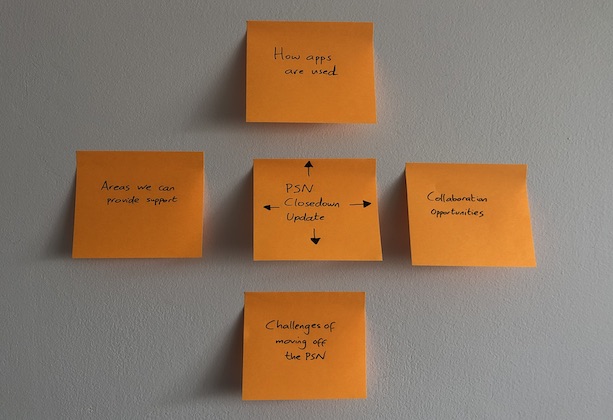 How apps
are used
Areas we can
provide support
PSN
Closedown
Update
Collaboration
Opportunities
Challenges of
moving off
the PSN